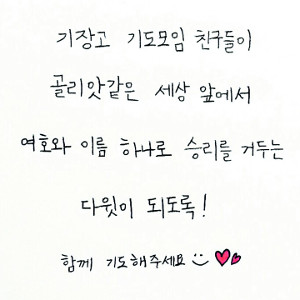 기장고 기도모임 친구들이
골리앗같은 세상 앞에서
여호와 이름 하나로 승리를 거두는
다윗이 되도록!
함께 기도해주세요